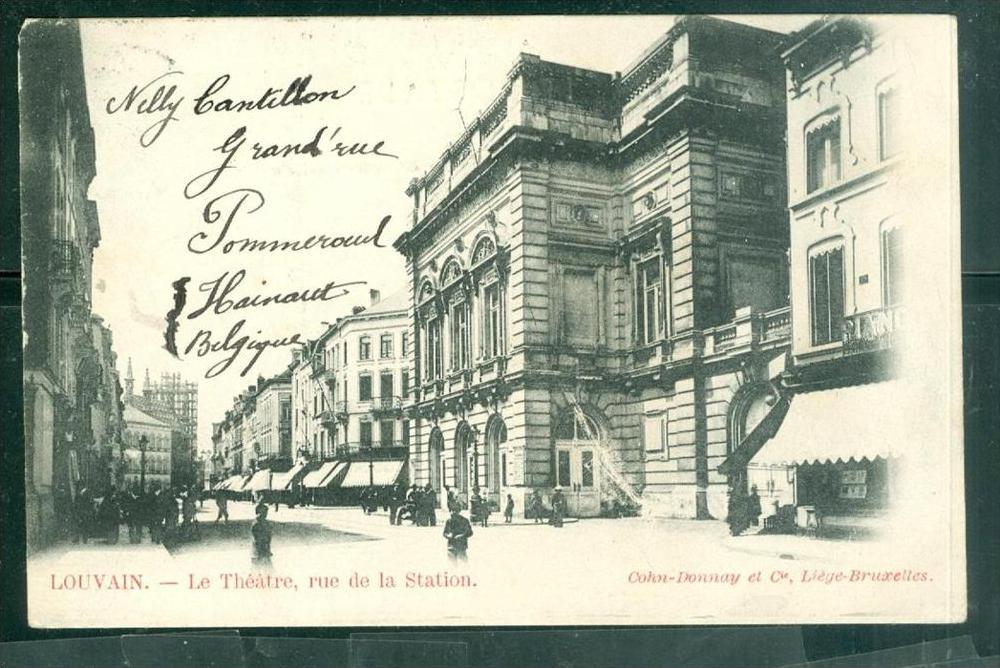 Nelly Cantillon
Grand'rue
Pommeroeul
Hainaut
Belgique
LOUVAIN. — Le Théâtre, rue de la Station.
Cohn-Donnay et Cie, Liège-Bruxelles.